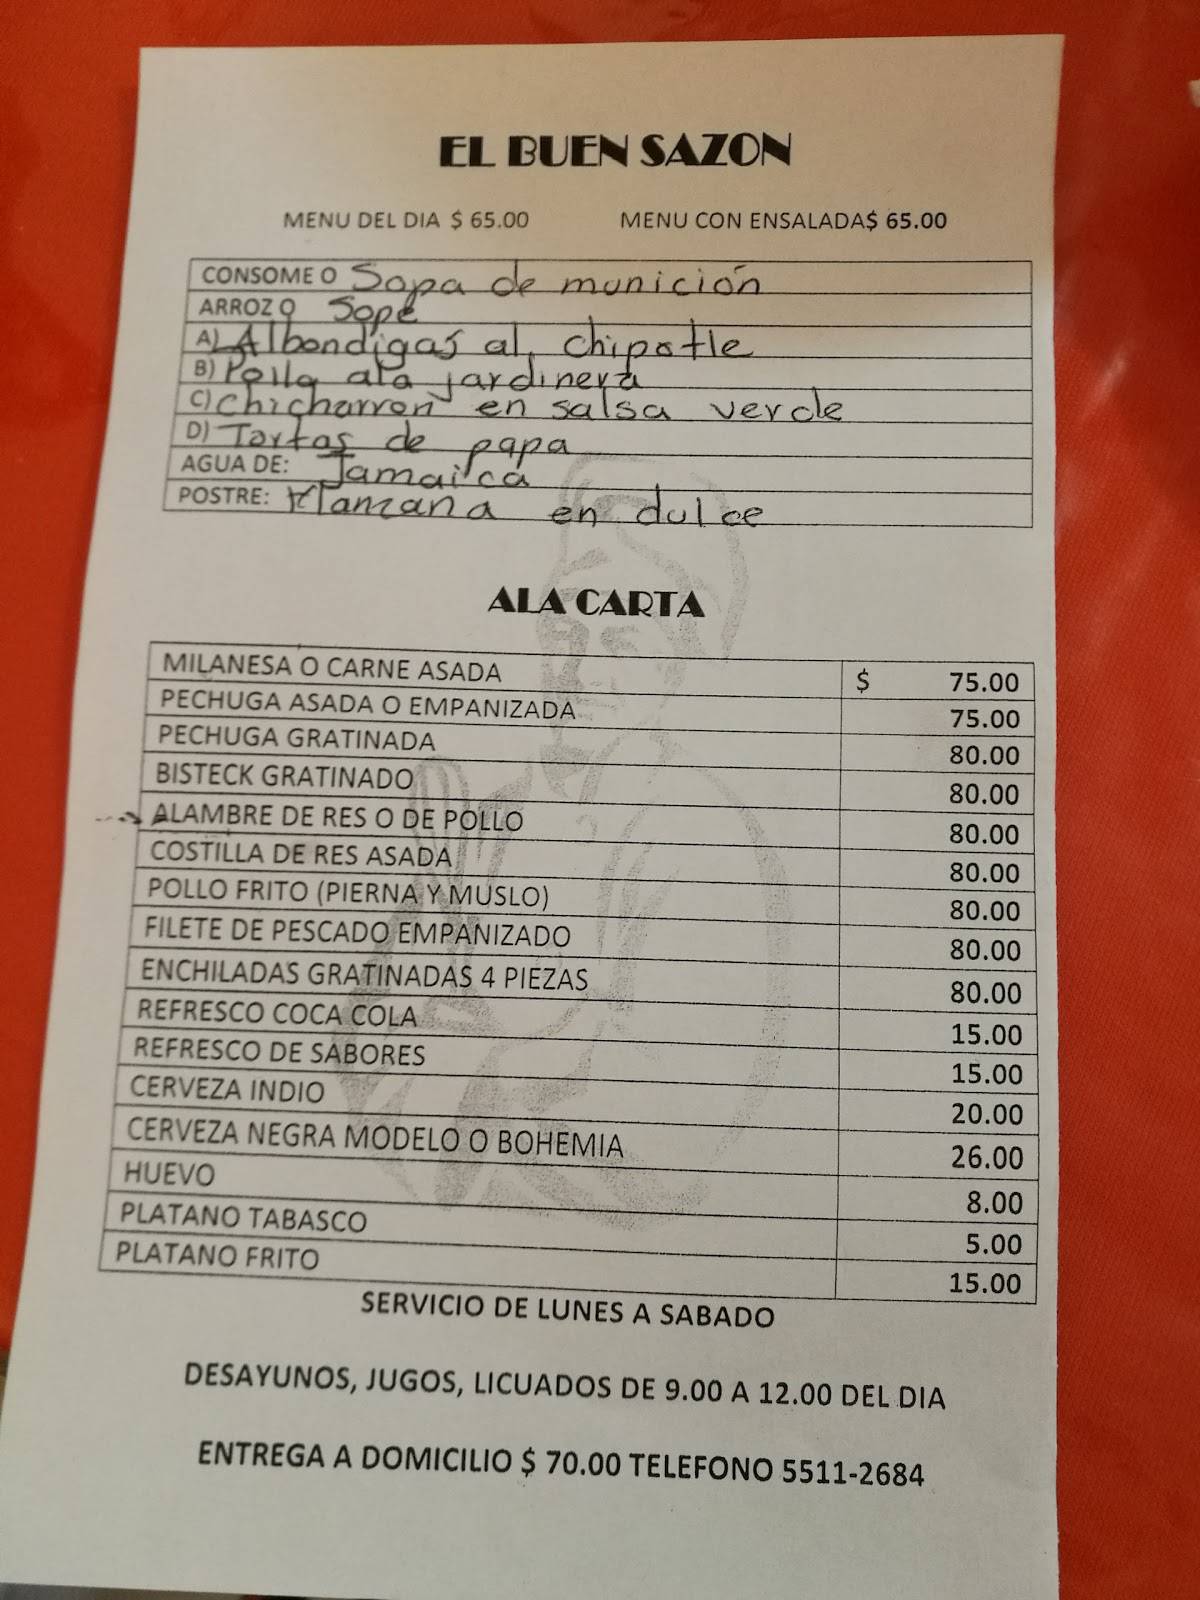 EL BUEN SAZON
MENU DEL DIA $ 65.00 MENU CON ENSALADA$ 65.00
CONSOME O Sopa de munición
ARROZ O Sope
A) Albondigas al chipotle
B) Pollo ala jardinera
C) Chicharron en salsa verde
D) Tortas de papa
AGUA DE: Jamaica
POSTRE: Manzana en dulce
ALA CARTA
MILANESA O CARNE ASADA $ 75.00
PECHUGA ASADA O EMPANIZADA 75.00
PECHUGA GRATINADA 80.00
BISTECK GRATINADO 80.00
ALAMBRE DE RES O DE POLLO 80.00
COSTILLA DE RES ASADA 80.00
POLLO FRITO (PIERNA Y MUSLO) 80.00
FILETE DE PESCADO EMPANIZADO 80.00
ENCHILADAS GRATINADAS 4 PIEZAS 80.00
REFRESCO COCA COLA 15.00
REFRESCO DE SABORES 15.00
CERVEZA INDIO 20.00
CERVEZA NEGRA MODELO O BOHEMIA 26.00
HUEVO 8.00
PLATANO TABASCO 5.00
PLATANO FRITO 15.00
SERVICIO DE LUNES A SABADO
DESAYUNOS, JUGOS, LICUADOS DE 9.00 A 12.00 DEL DIA
ENTREGA A DOMICILIO $ 70.00 TELEFONO 5511-2684